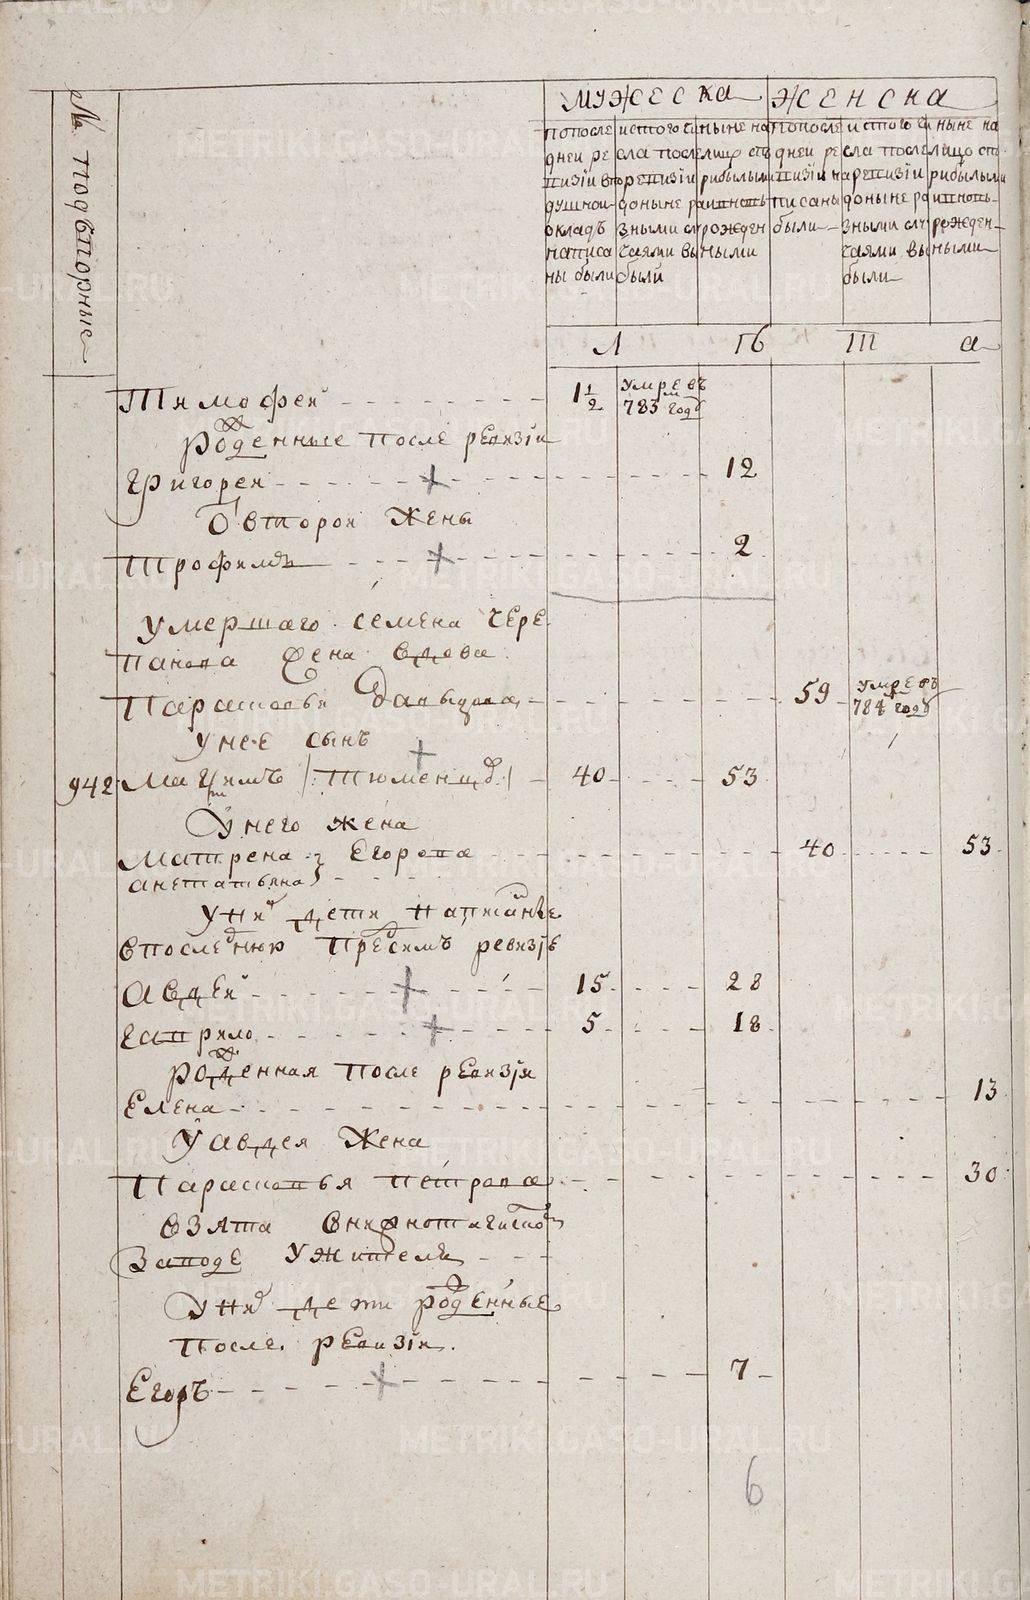 METRIKI.GASO-URAL.RU
№ подворные
мужеска
женска
попосле
дней ре
визіи в
душной
окладъ
написа
ны были
истого чи
сла после
ревизіи
доныне ра
зными слу
чаями вы
были
ныне на
лицо съ
прибылыми
ивновь
рожден
ными
попосле
дней ре
визіи на
писаны
были
истого чи
сла после
ревизіи
доныне ра
зными слу
чаями вы
были
ныне на
лицо съ
прибылыми
ивновь
рожден
ными
Л ѣ т а
Тимофей 1½ умре въ 783 м год
рожденные после ревизіи
Григорей + 12
Ѿ второй жены
Трофимъ + 2
умершаго семена чере
панова жена вдова
Парасковья Давыдова 59 умре въ 784 году
у нее сынъ
942 Мақимъ / Тюменцо / + 40 53
У него жена
Матрена Егорова 40 53
анетатьяна
у них дети написанные
впоследнюю пред симъ ревизіе
Авдей + 15 28
Гаврило + 5 18
рожденная после ревизія
Елена 13
У авдея жена
Парасковья петрова 30
взята внижнотагилско
Заводе у жителя
у них дети рожденные
после ревизіи
Егоръ + 7
6